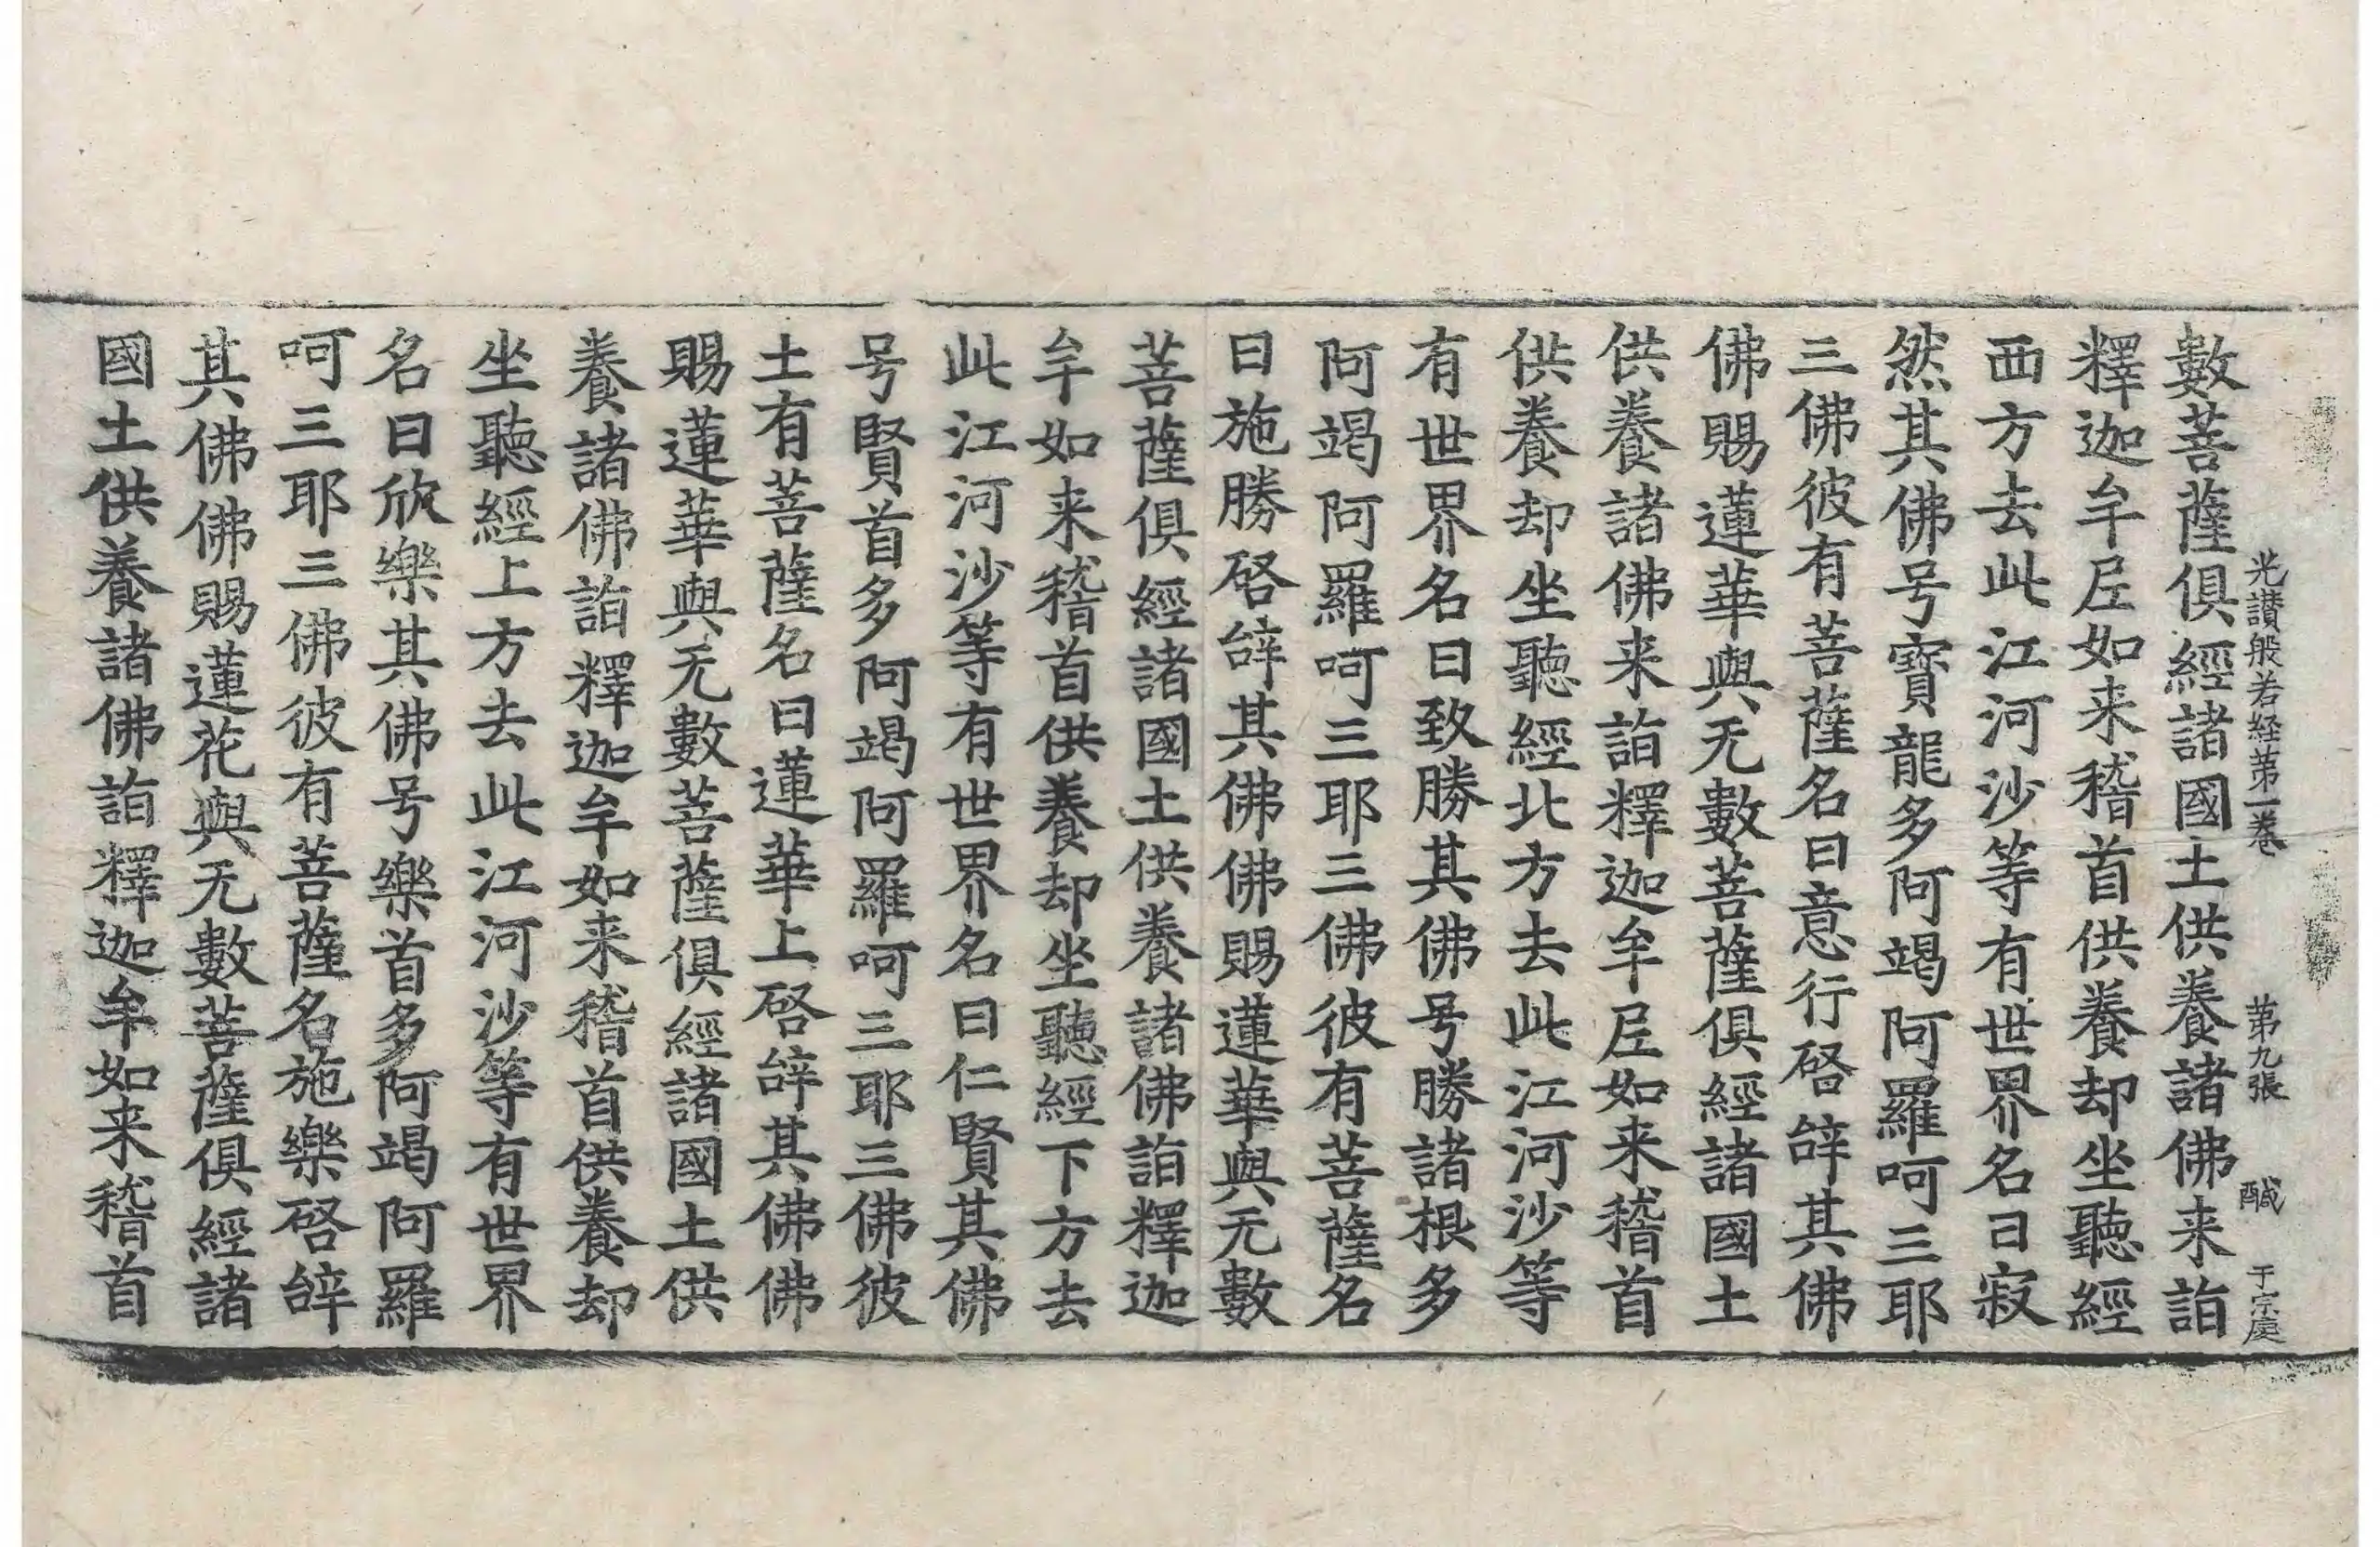 光讃般若経第一巻 第九張 醎 于宗處
數菩薩俱經諸國土供養諸佛来詣
釋迦牟尼如来稽首供養却坐聽經
西方去此江河沙等有世界名曰寂
然其佛号寶龍多阿竭阿羅呵三耶
三佛彼有菩薩名曰意行啓辝其佛
佛賜蓮華與无數菩薩俱經諸國土
供養諸佛来詣釋迦牟尼如来稽首
供養却坐聽經北方去此江河沙等
有世界名曰致勝其佛号勝諸根多
阿竭阿羅呵三耶三佛彼有菩薩名
曰施勝啓辝其佛佛賜蓮華與无數
菩薩俱經諸國土供養諸佛詣釋迦
牟如来稽首供養却坐聽經下方去
此江河沙等有世界名曰仁賢其佛
号賢首多阿竭阿羅呵三耶三佛彼
土有菩薩名曰蓮華上啓辝其佛佛
賜蓮華與无數菩薩俱經諸國土供
養諸佛詣釋迦牟如来稽首供養却
坐聽經上方去此江河沙等有世界
名曰欣樂其佛号樂首多阿竭阿羅
呵三耶三佛彼有菩薩名施樂啓辝
其佛佛賜蓮花與无數菩薩俱經諸
國土供養諸佛詣釋迦牟如来稽首